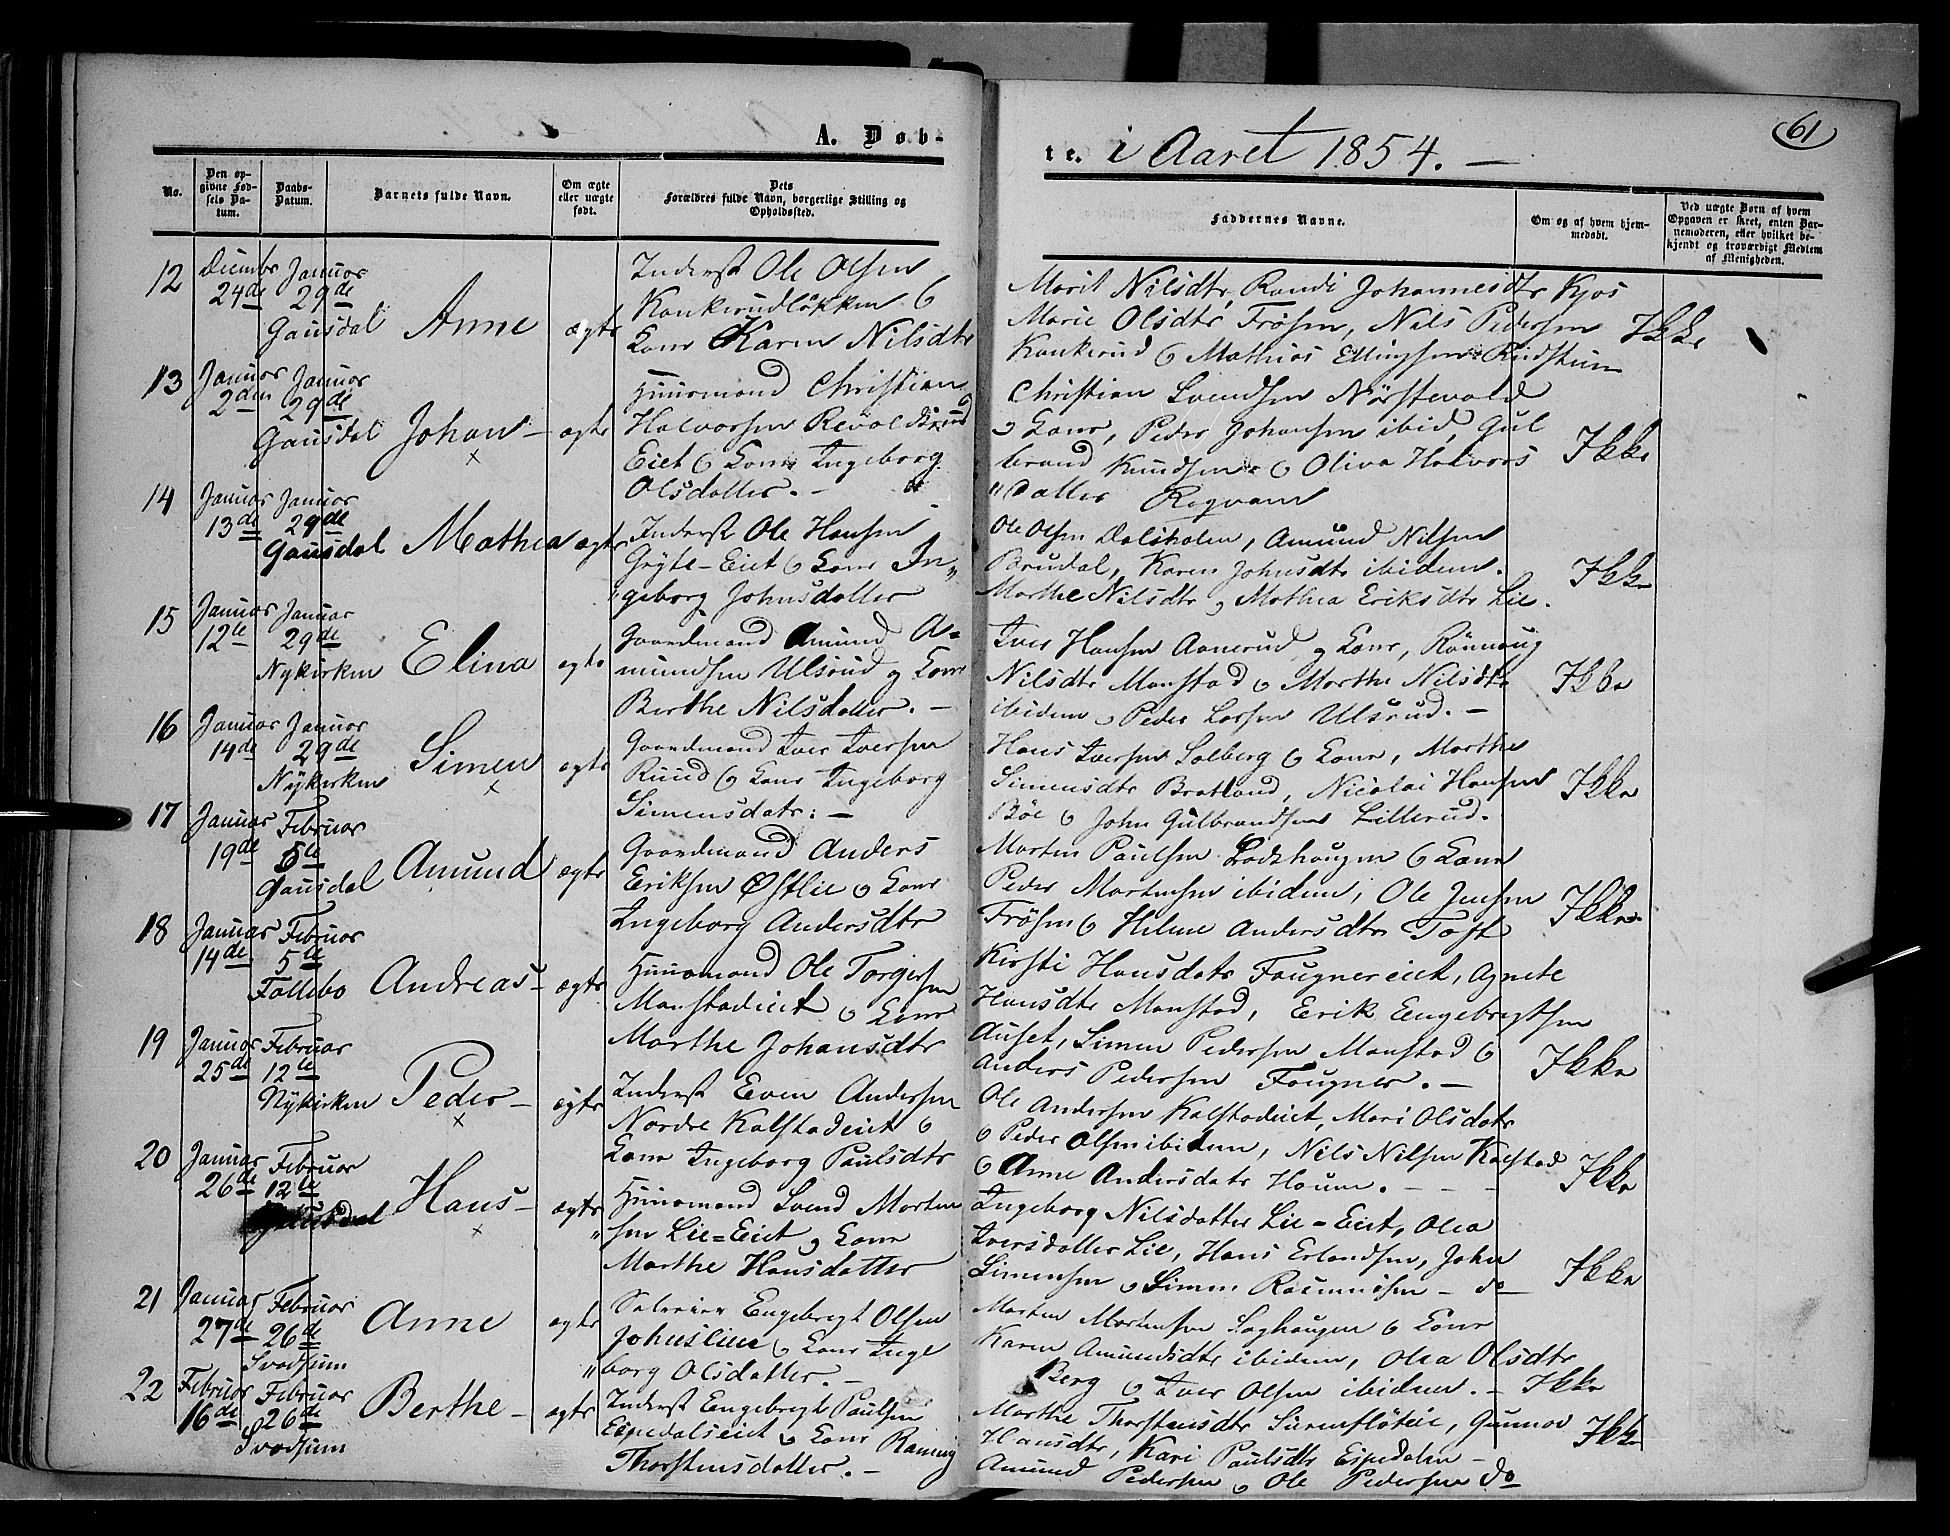 A. Døb-
te. i Aaret 1854. —
61
No.
Den op-
givne Fød-
sels Da-
tum.
Daabs-
Datum.
Barnets fulde Navn.
Om ægte
eller uægte
født.
Dets
Forældres fulde Navn, borgerlige Stilling og
Opholdssted.
Faddernes Navne.
Om og af hvem hjem-
medøbt.
Ved uægte Børn af hvem
Opgaven er skeet, enten Bar-
nemoderen, eller hvilket be-
kjendt og troværdigt Medlem
af Menigheden.
12
Decembr
24de
Januar
29de
Gausdal
Anne
ægte
Inderst Ole Olsen
Kankerudløkken &
Kone Karen Nilsdtr
Marit Nilsdtr, Randi Johannesdtr Kjos
Marie Olsdtr Frøsen, Nils Pedersen
Kankerud & Mathias Ellingsen
Ikke
13
Januar
2den
Januar
29de
Gausdal
Johan —
ægte
Huusmand Christian
Halvorsen
Eiet & Kone Ingeborg
Olsdatter. —
Christian Svendsen Nørstevold
& Kone, Peder Johansen ibid, Gul
brand Knudsen & Oliva Halvors
" datter
Ikke
14
Januar
13de
Januar
29de
Gausdal
Mathea
ægte
Inderst Ole Hansen
Gryte-Eiet & Kone In"
"geborg Johnsdatter
Ole Olsen Dalsholen, Amund Nilsen
Brudal, Karen Johnsdtr ibidem.
Marthe Nilsdtr og Mathea Eriksdtr Lie.
Ikke
15
Januar
12te
Januar
29de
Nykirken
Elina
ægte
Gaardmand Amund A=
mundsen Ulsrud og Kone
Berthe Nilsdatter. —
Iver Hansen Aanerud og Kone, Rønnaug
Nilsdtr Manstad & Marthe Nilsdtr
ibidem & Peder Larsen Ulsrud. —
Ikke
16
Januar
14de
Januar
29de
Nykirken
Simen
ægte
Gaardmand Iver Iversen
Ruud & Kone Ingeborg
Simensdatr: —
Hans Iversen Solberg & Kone, Marthe
Simensdtr Bratland, Nicolai Hansen
Bøe & John Gulbrandsen Lillerud.
Ikke
17
Januar
19de
Februar
5te
Gausdal
Amund
ægte
Gaardmand Anders
Eriksen Østlie & Kone
Ingeborg Andersdtr
Morten Paulsen & Kone
Peder Mortensen ibidem, Ole Jensen
Frøsen & Helene Andersdtr Toft
Ikke
18
Januar
14de
Februar
5te
Follebo
Andreas —
ægte
Huusmand Ole Torgersen
Manstadeiet & Kone
Marthe Johansdtr
Kirsti Hansdatr Faugnereiet, Agnete
Hansdtr Manstad, Eerik Eengebregtsen
Auset, Simen Pedersen Manstad &
Anders Pedersen Faugner. —
Ikke
19
Januar
25de
Februar
12te
Nykirken
Peder —
ægte
Inderst Even Andersen
Nordre Kalstadeiet &
Kone Ingeborg Paulsdtr
Ole Andersen Kalstadeiet, Mari Olsdatr
& Peder Olsen ibidem, Nils Nilsen Kalstad
& Anne Andersdatr Houm. — — —
Ikke
20
Januar
26de
Februar
12te
Gausdal
Hans —
ægte
Huusmand Svend Morten
"sen Lie=Eiet og Kone
Marthe Hansdatter
Ingeborg Nilsdatter Lie=Eiet, Olea
Iversdatter Lie, Hans Erlandsen, John
Simensen & Simen Rasmussen — do —
Ikke
21
Januar
27de
Februar
26de
Svadsum
Anne
ægte
Selveier Engebregt Olsen
Johnslien & Kone Inge
"borg Olsdatter. —
Morten Mortensen & Kone
Karen Amundsdtr ibidem, Olea Olsdtr
Berg & Iver Olsen ibidem. —
Ikke
22
Februar
16de
Februar
26de
Svadsum
Berthe —
ægte
Inderst Engebregt Paulsen
Espedalseiet & Kone
Thorstensdatter. —
Marthe Thorstensdtr, Gunnor
Hansdtr, Kari Paulsdtr Espedalen —
Amund Pedersen & Ole Pedersen do
Ikke